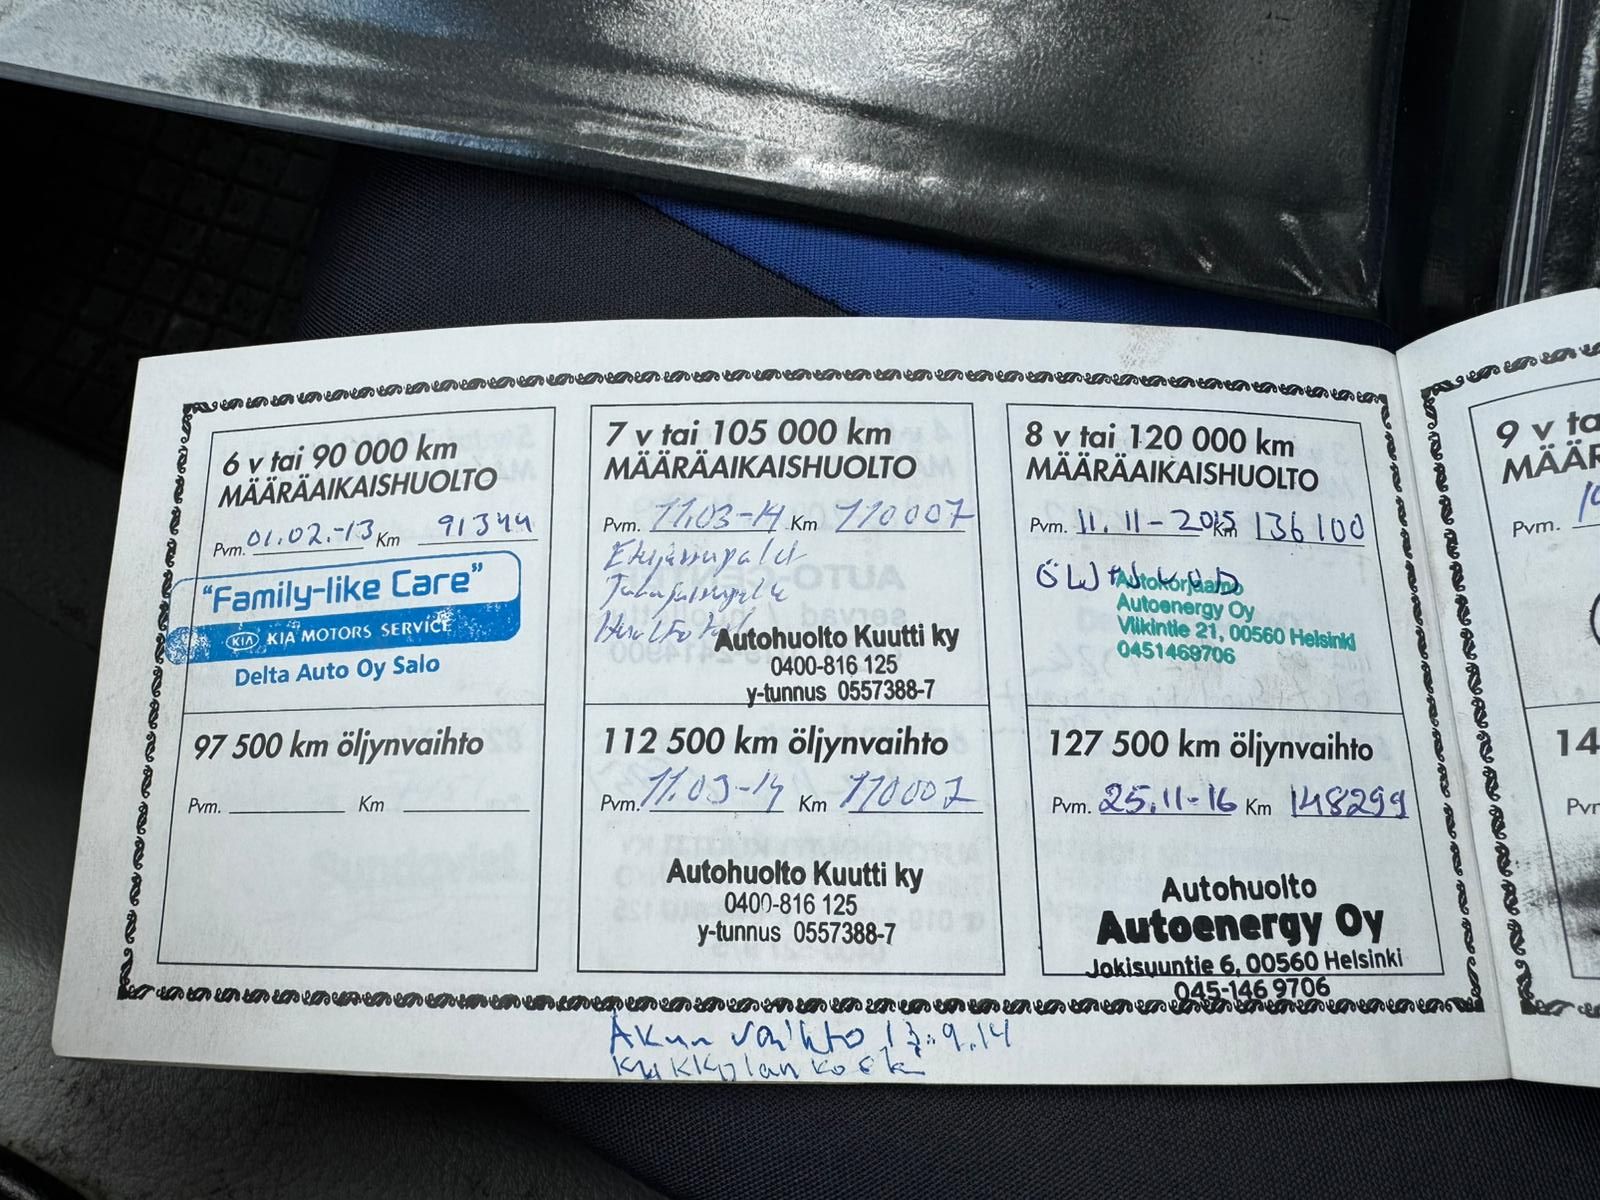 6 v tai 90 000 km
MÄÄRÄAIKAISHUOLTO
Pvm. 01.02.-13 Km 91344
"Family-like Care"
KIA KIA MOTORS SERVICE
Delta Auto Oy Salo
97 500 km öljynvaihto
Pvm. Km
7 v tai 105 000 km
MÄÄRÄAIKAISHUOLTO
Pvm. 11.03-14 Km 110007
Etujarrupalat
Autohuolto Kuutti ky
0400-816 125
y-tunnus 0557388-7
112 500 km öljynvaihto
Pvm. 11.03-14 Km 110007
Autohuolto Kuutti ky
0400-816 125
y-tunnus 0557388-7
8 v tai 120 000 km
MÄÄRÄAIKAISHUOLTO
Pvm. 11.11-2015 Km 136100
Autokorjaamo
Autoenergy Oy
Viikintie 21, 00560 Helsinki
0451469706
127 500 km öljynvaihto
Pvm. 25.11-16 Km 148299
Autohuolto
Autoenergy Oy
Jokisuuntie 6, 00560 Helsinki
045-146 9706
Akun vaihto 13.9.14
Kukkolankoski
9 v ta
MÄÄR
Pvm.
14
Pvr